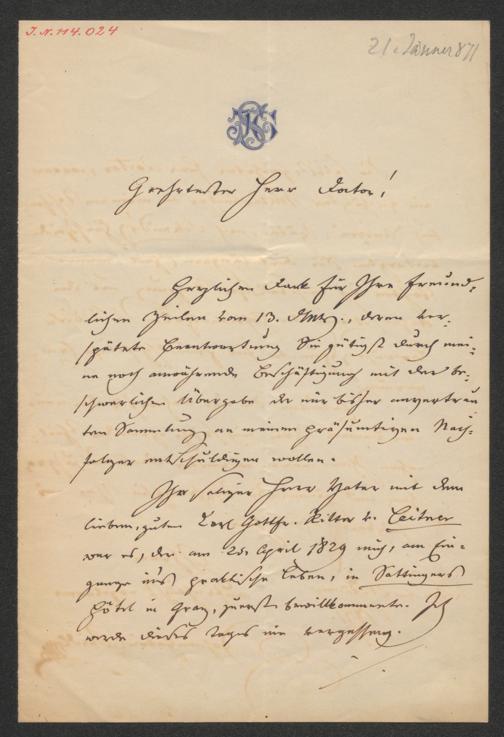 J.N. 114.024
21. Jänner 871
Geehrtester Herr Doctor!
Herzlichen Dank für Ihre freund-
lichen Zeilen vom 13. d. Mts., deren ver-
spätete Beantwortung Sie gütigst durch mei-
ne noch andauernde Beschäftigung mit der be-
schwerlichen Übergabe der mir bisher anvertrau
ten Sammlung an meinen präsumtiven Nach-
folger entschuldigen wollen.
Ihr seliger Herr Vater mit dem
lieben, guten Carl Gottfr. Ritter v. Leitner
war es, der am 20. April 1829 mich, am Ein-
gange ins praktische Leben, in Sattingers
Hôtel in Graz, zuerst bewillkommte. Ich
werde dieses Tages nie vergessen.